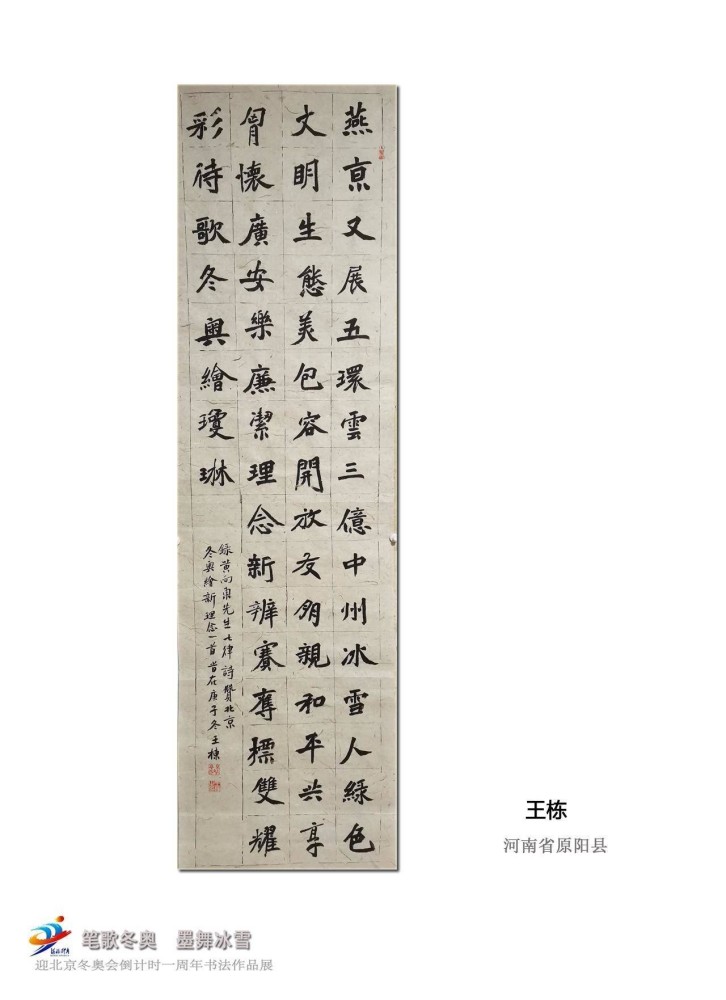 燕亰又展五環雲三億中州冰雪人綠色
文明生態美包容開放友朋親和平共享
胷懷廣安樂廉潔理念新辦賽奪標雙耀
彩待歌冬奧繪瓊琳
録黄向泉先生七律詩贊北京
冬奧繪新理念一首昔在庚子冬王棟
王栋
河南省原阳县
笔歌冬奥 墨舞冰雪
迎北京冬奥会倒计时一周年书法作品展